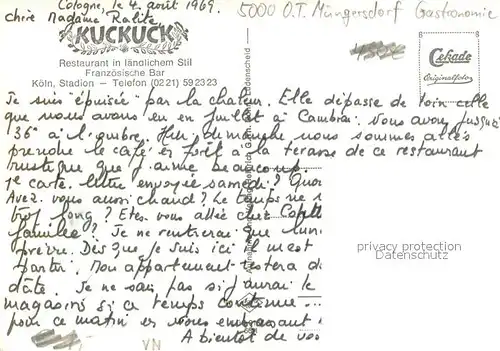 Cologne, le 4 août 1969.
5000 O.T. Müngersdorf Gastronomie
Chère Madame Ralite,
KUCKUCK
Restaurant in ländlichem Stil
Französische Bar
Köln, Stadion — Telefon (02 21) 59 23 23
Cekade
Originalfoto
Je suis "épuisée" par la chaleur. Elle dépasse de loin celle
que nous avons eu en juillet à Cambrai. Vous avons jusque
36° à l'ombre. Hier, dimanche nous sommes allés
prendre le café en forêt à la terasse de ce restaurant
rustique que j'aime beaucoup.
carte lettre envoyée samedi?
Avez-vous aussi chaud? Le temps ne
trop long? Etes-vous allée chez
famille? Je ne rentrerai que
Dès que je suis ici il m'est
partir, Mon appartement restera
dâte. Je ne sais pas si j'aurai le
magasins si ce temps continue...
pour ce matin en vous embrassant
A bientôt de
VN
privacy protection
Datenschutz